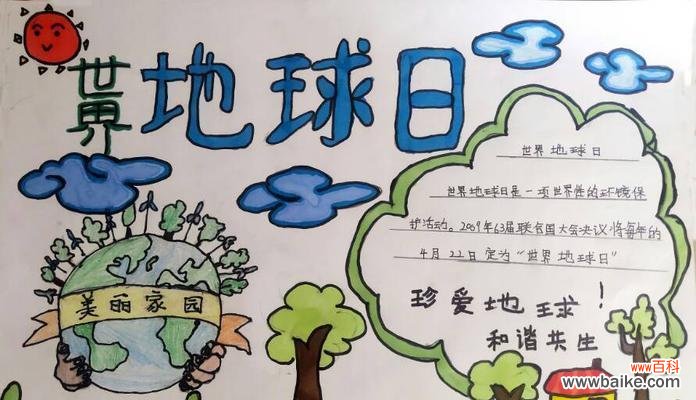 世界
地球日
世界地球日
世界地球日是一项世界性的环镜保
护活动。2009年63届联合国大会决议将每年的
4月22日定为“世界地球日”
珍爱地球！
和谐共生
美丽家园
www百科
www.baike.com/